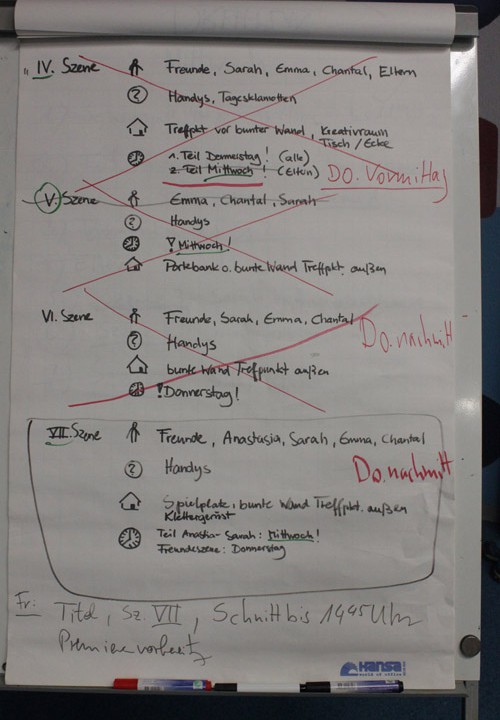 IV. Szene Freunde, Sarah, Emma, Chantal, Eltern
Handys, Tagesklamotten
Treffpkt vor bunter Wand, Kreativraum
Tisch / Ecke
1. Teil Donnerstag! (alle)
2. Teil Mittwoch! (Eltern)
Do. Vormittag
V. Szene Emma, Chantal, Sarah
Handys
! Mittwoch!
Parkbank o. bunte Wand Treffpkt. außen
VI. Szene Freunde, Sarah, Emma, Chantal
Do. nachmitt
Handys
bunte Wand Treffpunkt außen
! Donnerstag!
VII. Szene Freunde, Anastasia, Sarah, Emma, Chantal
Handys
Do. nachmitt
Spielplatz, bunte Wand Treffpkt. außen
Klettergerüst
Teil Anastia-Sarah: Mittwoch!
Freundeszene: Donnerstag
Fr: Titel, Sz. VII, Schnitt bis 1445 Uhr
Premierenvorbereitg
Hansa